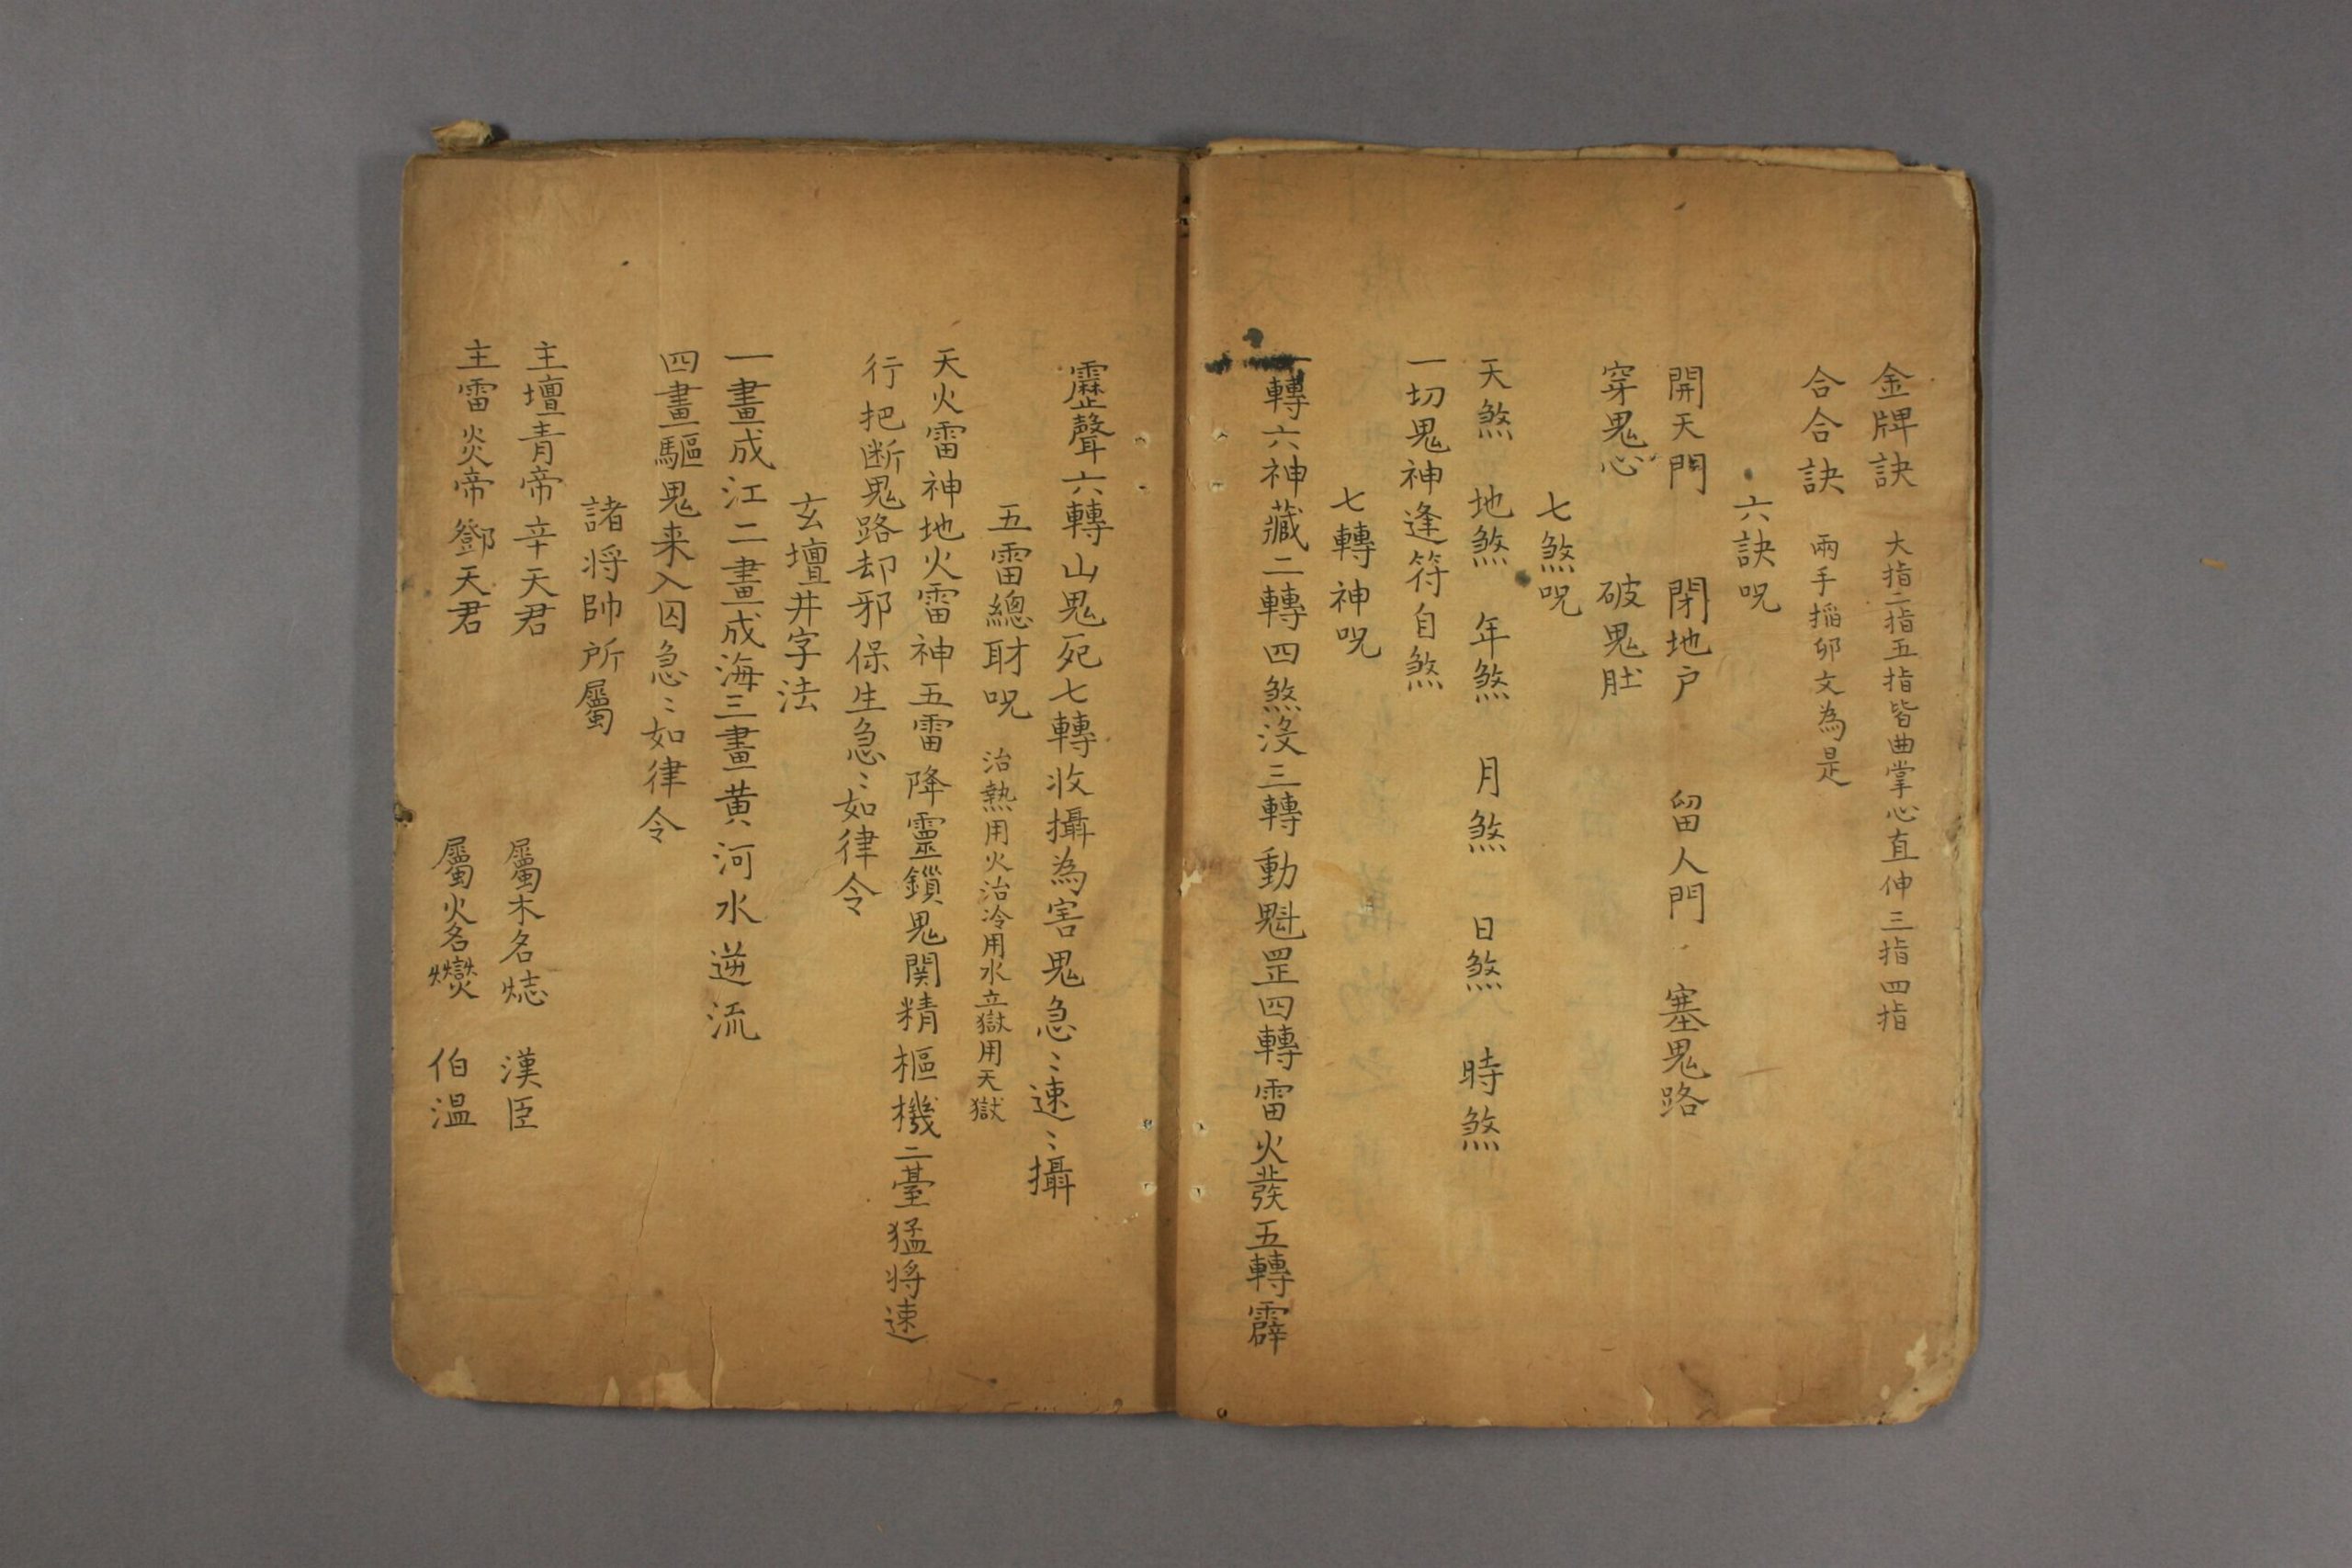 金牌訣 大指二指五指皆曲掌心直伸三指四指
合合訣 兩手搯卯文為是
六訣呪
開天門 閉地户 留人門 塞鬼路
穿鬼心 破鬼肚
七煞呪
天煞 地煞 年煞 月煞 日煞 時煞
一切鬼神逢符自煞
七轉神呪
一轉六神藏二轉四煞没三轉動魁罡四轉雷火發五轉霹
靂聲六轉山鬼死七轉收攝為害鬼急〻速〻攝
五雷總財呪 治熱用火治冷用水立獄用天獄
天火雷神地火雷神五雷降靈鎖鬼関精樞機二臺猛将速
行把断鬼路却邪保生急〻如律令
玄壇井字法
一畫成江二畫成海三畫黄河水逆流
四畫驅鬼来入囚急〻如律令
諸将帥所屬
主壇青帝辛天君 屬木名 漢臣
主雷炎帝鄧天君 屬火名燮 伯温